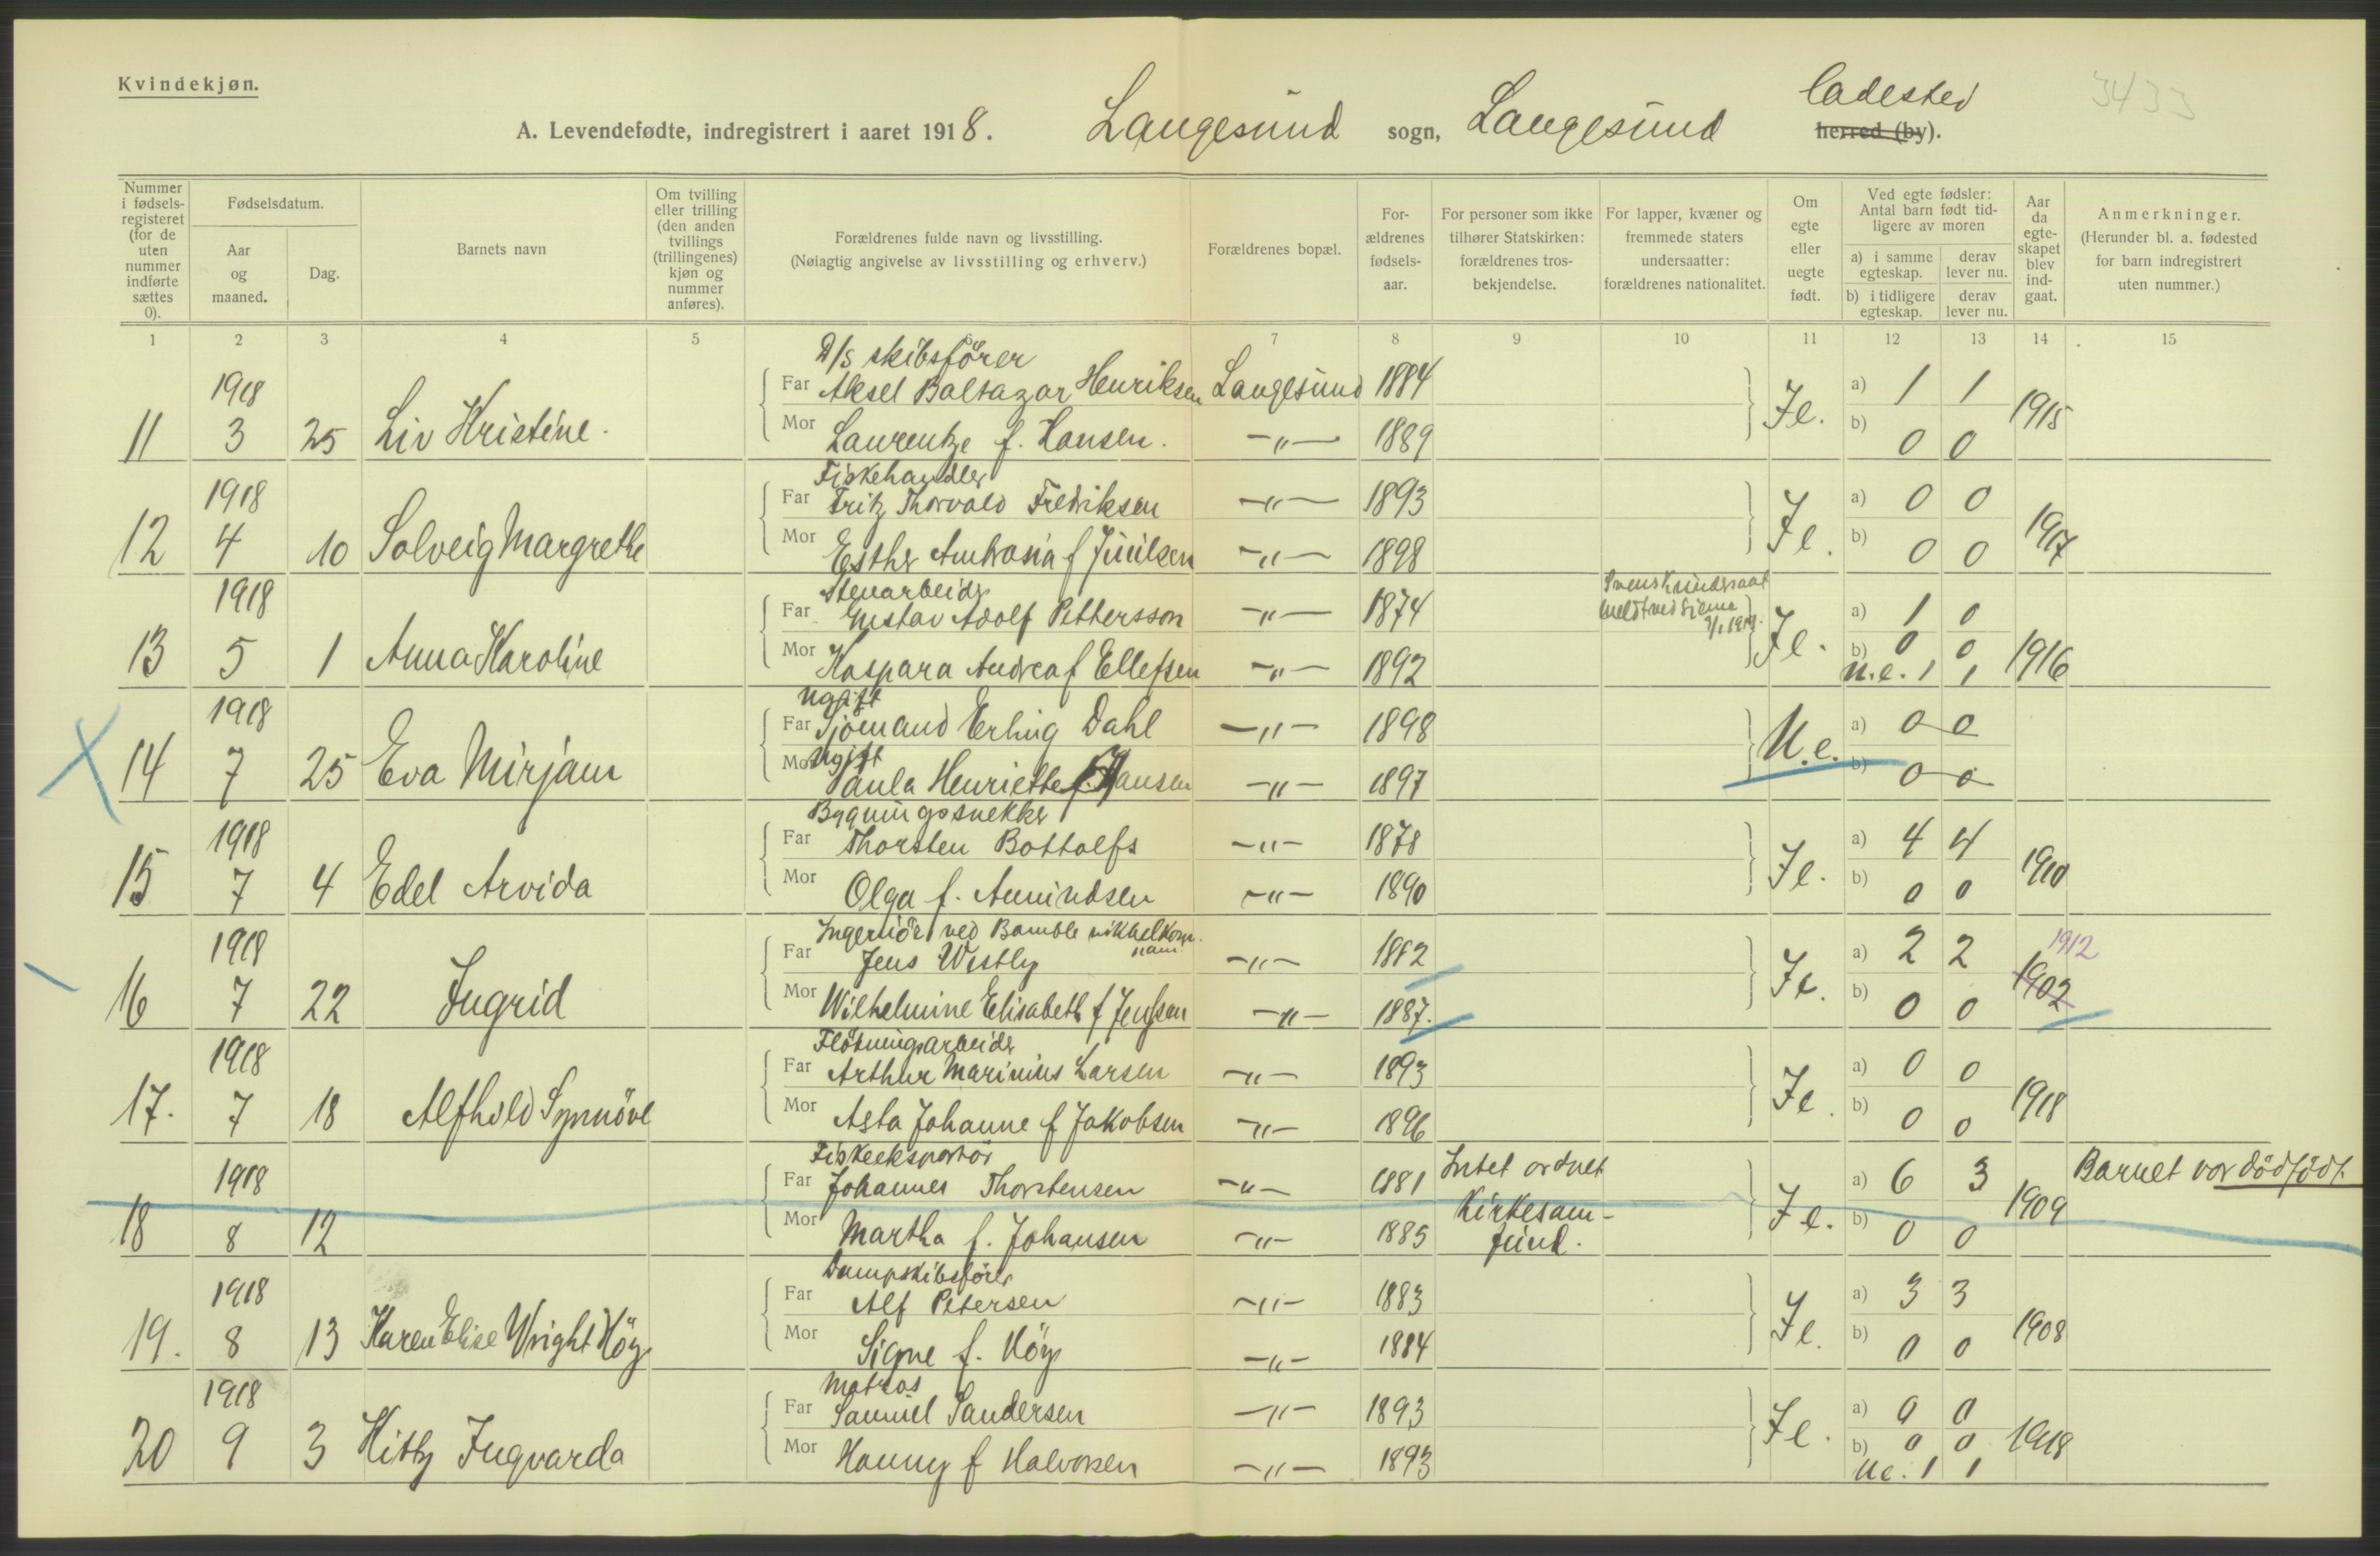 Kvindekjøn.
A. Levendefødte, indregistrert i aaret 1918. Langesund sogn, Langesund ladested herred (by).
3433
Nummer i fødselsregisteret (for de uten nummer indførte sættes 0).
Fødselsdatum.
Aar og maaned.
Dag.
Barnets navn
Om tvilling eller trilling (den anden tvillings (trillingenes) kjøn og nummer anføres).
Forældrenes fulde navn og livsstilling.
(Nøiagtig angivelse av livsstilling og erhverv.)
Forældrenes bopæl.
Forældrenes fødselsaar.
For personer som ikke tilhører Statskirken: forældrenes trosbekjendelse.
For lapper, kvæner og fremmede staters undersaatter: forældrenes nationalitet.
Om egte eller uegte født.
Ved egte fødsler: Antal barn født tidligere av moren
a) i samme egteskap. derav lever nu.
b) i tidligere egteskap. derav lever nu.
Aar da egteskapet blev indgaat.
Anmerkninger.
(Herunder bl. a. fødested for barn indregistrert uten nummer.)
1 2 3 4 5 6 7 8 9 10 11 12 13 14 15
D/s skibsförer
1918 Far Aksel Baltazar Henriksen Langesund 1884 a) 1 1
11 3 25 Liv Kristine. Mor Laurentze f. Hansen. -"- 1889 Je. b) 0 0 1915
Fiskehandler
1918 Far Fritz Thorvald Fredriksen -"- 1893 a) 0 0
12 4 10 Solveig Margrethe Mor Esther Ambrosia f Juulsen -"- 1898 Je. b) 0 0 1917
Stenarbeider
1918 Far Gustav Adolf Pettersson -"- 1874 Svensk undersaat a) 1 0
13 5 1 Anna Karoline Mor Kaspara Andrea f Ellefsen -"- 1892 Je. b) 0 0 1916
u.e. 1 1
Ugift
1918 Far Sjömand Erling Dahl -"- 1898 a) 0 0
Ugift
14 7 25 Eva Mirjam Mor Paula Henriette Hansen -"- 1897 U.e. b) 0 0
Bygningssnekker
1918 Far Thorsten Bottolfs -"- 1878 a) 4 4
15 7 4 Edel Arvida Mor Olga f. Amundsen -"- 1890 Je. b) 0 0 1910
Ingeniör ved Bamble nikkelkom.
1918 Far Jens Westly -"- 1882 a) 2 2 1912
16 7 22 Ingrid Mor Wilhelmine Elisabeth f Jenssen -"- 1887. Je. b) 0 0 1902
Flötningsarbeider
1918 Far Arthur Marinius Larsen -"- 1893 a) 0 0
17. 7 18 Alfhild Synnöve Mor Asta Johanne f Jakobsen -"- 1896 Je. b) 0 0 1918
Fiskeeksportör
1918 Far Johannes Thorstensen -"- 1881 Intet ordnet a) 6 3 Barnet var dödfödt.
18 8 12 Mor Martha f. Johansen -"- 1885 Kirkesam- Je. b) 0 0 1909
fund.
Dampskibsförer
1918 Far Alf Petersen -"- 1883 a) 3 3
19. 8 13 Karen Elise Wright Höy Mor Signe f. Höy -"- 1884 Je. b) 0 0 1908
Matros
1918 Far Samuel Sandersen -"- 1893 a) 0 0
20 9 3 Kitty Ingvarda Mor Hanny f Halvorsen -"- 1893 Je. b) 0 0 1918
ue. 1 1